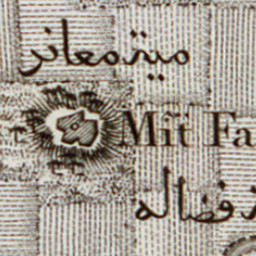 ميت معاند
Mît Fa
فضاله